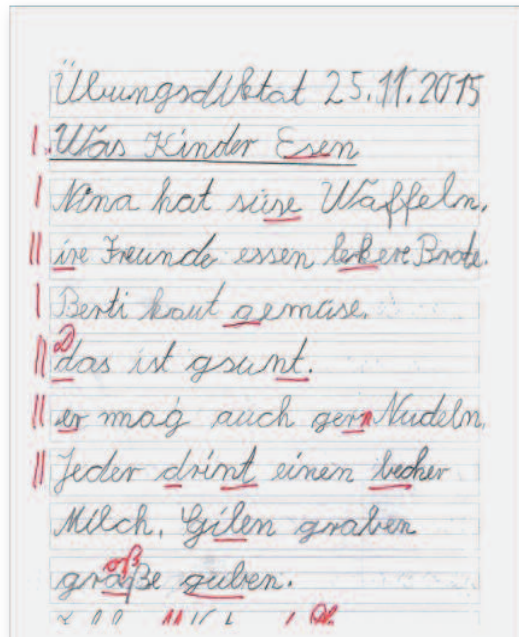 Übungsdiktat 25.11.2015
Was Kinder Esen
Nina hat süse Waffeln.
ire Freunde essen lekere Brote.
Berti kaut gemüse.
das ist gsunt.
er mag auch gern Nudeln.
Jeder drint einen becher
Milch. Gilen graben
graße guben.